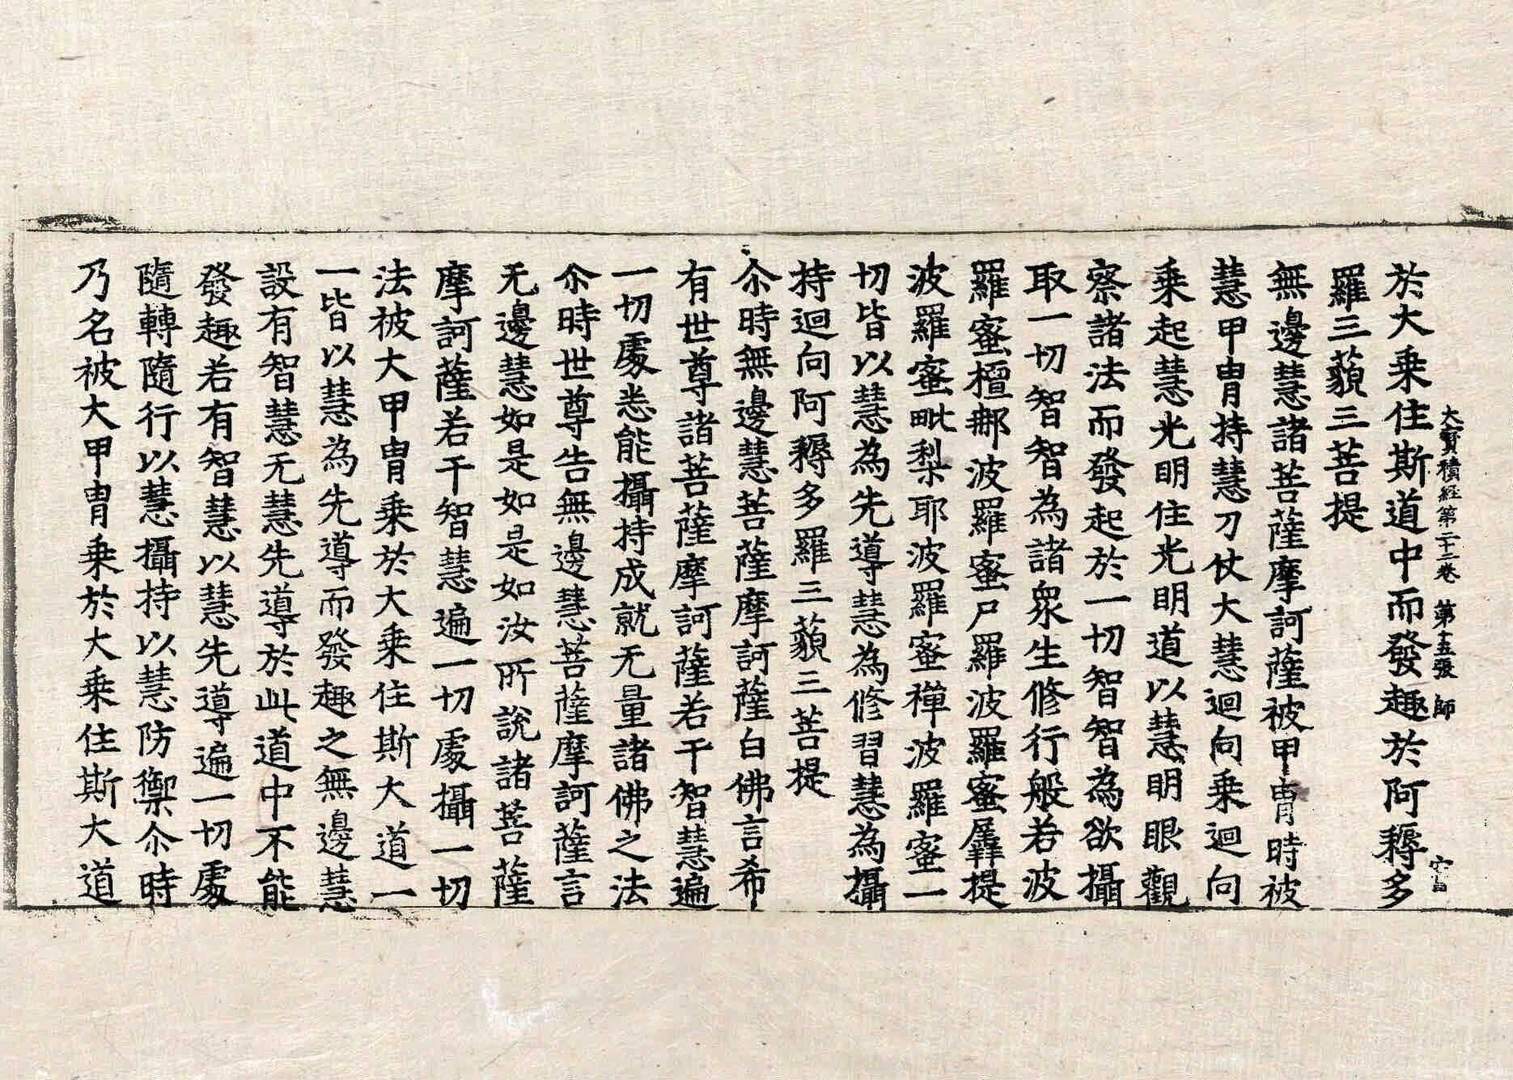 大寶積經第二十二卷 第十五張 師
於大乘住斯道中而發趣於阿耨多
羅三藐三菩提
無邊慧諸菩薩摩訶薩被甲冑時被
慧甲冑持慧刀仗大慧迴向乘迴向
乘起慧光明住光明道以慧明眼觀
察諸法而發起於一切智智為欲攝
取一切智智為諸衆生修行般若波
羅蜜檀那波羅蜜尸羅波羅蜜羼提
波羅蜜毗梨耶波羅蜜禪波羅蜜一
切皆以慧為先導慧為修習慧為攝
持迴向阿耨多羅三藐三菩提
尒時無邊慧菩薩摩訶薩白佛言希
有世尊諸菩薩摩訶薩若干智慧遍
一切處悉能攝持成就无量諸佛之法
尒時世尊告無邊慧菩薩摩訶薩言
无邊慧如是如是如汝所說諸菩薩
摩訶薩若干智慧遍一切處攝一切
法被大甲冑乘於大乘住斯大道一
一皆以慧為先導而發趣之無邊慧
設有智慧无慧先導於此道中不能
發趣若有智慧以慧先導遍一切處
隨轉隨行以慧攝持以慧防禦尒時
乃名被大甲冑乘於大乘住斯大道